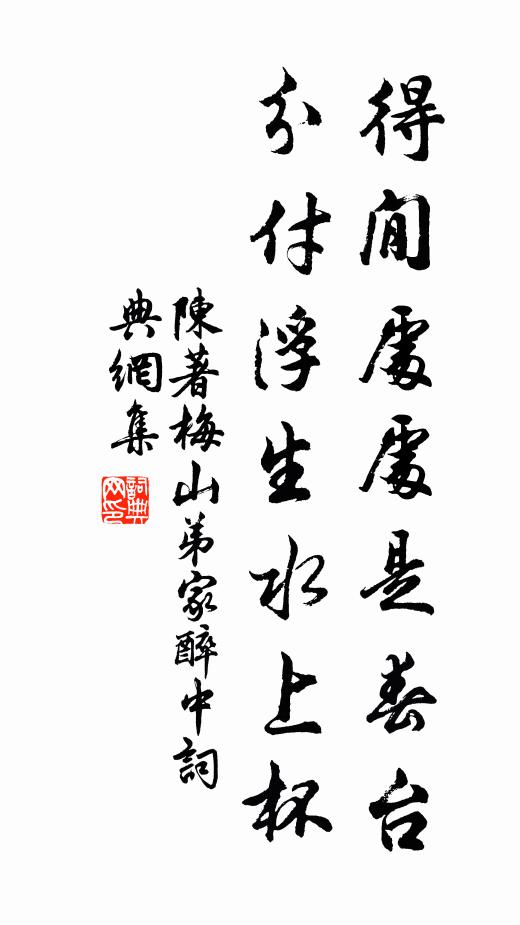 得閒處處是春台
分付浮生水上杯
陳著梅山弟家醉中詞
典網集
詞典网印